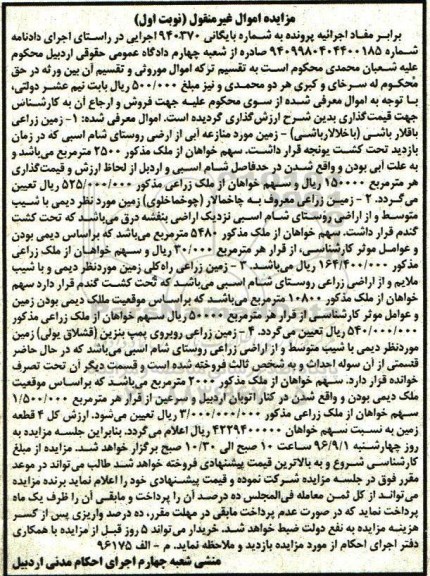 مزایده اموال غیرمنقول (نوبت اول)
برابر مفاد اجرائیه پرونده به شماره بایگانی ۹۴۰۳۷۰ اجرایی در راستای اجرای دادنامه
شماره ۹۴۰۹۹۸۰۴۰۴۴۰۰۱۸۵ صادره از شعبه چهارم دادگاه عمومی حقوقی اردبیل محکوم
علیه شعبان محمدی محکوم است به تقسیم ترکه اموال موروثی و تقسیم آن بین ورثه در حق
محکوم له سرخای و کبری هر دو محمدی و نیز مبلغ ۵۰۰/۰۰۰ ریال بابت نیم عشر دولتی،
با توجه به اموال معرفی شده از سوی محکوم علیه جهت فروش و ارجاع آن به کارشناس
جهت قیمت‌گذاری بدین شرح ارزش‌گذاری گردیده است. اموال معرفی شده: ۱- زمین زراعی
باقلار باشی (باخلالار باشی) - زمین مورد منازعه آبی از ارضی روستای شام اسبی که در زمان
بازدید تحت کشت یونجه قرار داشت. سهم خواهان از ملک مذکور ۲۵۰۰ مترمربع می‌باشد و
به علت آبی بودن و واقع شدن در حدفاصل شام اسبی و اردبیل از لحاظ ارزش و قیمت‌گذاری
هر مترمربع ۱۵۰۰۰۰ ریال و سهم خواهان از ملک زراعی مذکور ۵۲۵/۰۰۰/۰۰۰ ریال تعیین
می‌گردد. ۲- زمین زراعی معروف به چاخمالار (چوخماخلوی) زمین مورد نظر دیمی با شیب
متوسط و از اراضی روستای شام اسبی نزدیک اراضی بنفشه درق می‌باشد که تحت کشت
گندم قرار داشت. سهم خواهان از ملک مذکور ۵۴۸۰ مترمربع می‌باشد که براساس دیمی بودن
و عوامل موثر کارشناسی، از قرار هر مترمربع ۳۰/۰۰۰ ریال و سهم خواهان از ملک زراعی
مذکور ۱۶۴/۴۰۰/۰۰۰ ریال می‌باشد. ۳- زمین زراعی راه‌کلی زمین موردنظر دیمی و با شیب
ملایم و از اراضی زراعی روستای شام اسبی می‌باشد که تحت کشت گندم قرار دارد سهم
خواهان از ملک مذکور ۱۰۸۰۰ مترمربع می‌باشد که براساس موقعیت ملک دیمی بودن زمین
و عوامل موثر کارشناسی از قرار هر مترمربع ۵۰۰۰۰ ریال سهم خواهان از ملک زراعی مذکور
۵۴۰/۰۰۰/۰۰۰ ریال تعیین می‌گردد. ۴- زمین زراعی روبروی پمپ بنزین (قشلاق یولی) زمین
موردنظر دیمی با شیب متوسط و از اراضی زراعی روستای شام اسبی می‌باشد که در حال حاضر
قتسمتی از آن سوله احداث و به شخص ثالث فروخته شده است و قسمت دیگر آن تحت تصرف
خوانده قرار دارد. سهم خواهان از ملک مذکور ۲۰۰۰ مترمربع می‌باشد که براساس موقعیت
ملک دیمی بودن و واقع شدن در کنار اتوبان اردبیل و سرعین از قرار هر مترمربع ۱/۵۰۰/۰۰۰
سهم خواهان از ملک زراعی مذکور ۳/۰۰۰/۰۰۰/۰۰۰ ریال تعیین می‌شود. ارزش کل ۴ قطعه
زمین به نسبت سهم خواهان ۴۲۲۹۴۰۰۰۰۰ ریال اعلام می‌گردد. بنابراین جلسه مزایده به
روز چهارشنبه ۹۶/۹/۱ ساعت ۱۰ صبح الی ۱۰/۳۰ صبح برگزار خواهد شد. مزایده از مبلغ
کارشناسی شروع و به بالاترین قیمت پیشنهادی فروخته خواهد شد طالب می‌تواند در موعد
مقرر فوق در جلسه مزایده شرکت نموده و قیمت پیشنهادی خود را اعلام نماید برنده مزایده
می‌تواند از کل ثمن معامله فی‌المجلس ده درصد آن را پرداخت و مابقی آن را ظرف یک ماه
پرداخت نماید که در صورت عدم پرداخت مابقی در مهلت مقرر، ده درصد واریزی پس از کسر
هزینه مزایده به نفع دولت ضبط خواهد شد. خریدار می‌تواند ۵ روز قبل از مزایده با همکاری
دفتر اجرای احکام از مورد مزایده بازدید و ملاحظه نماید. م - الف ۹۶۱۷۵
منشی شعبه چهارم اجرای احکام مدنی اردبیل